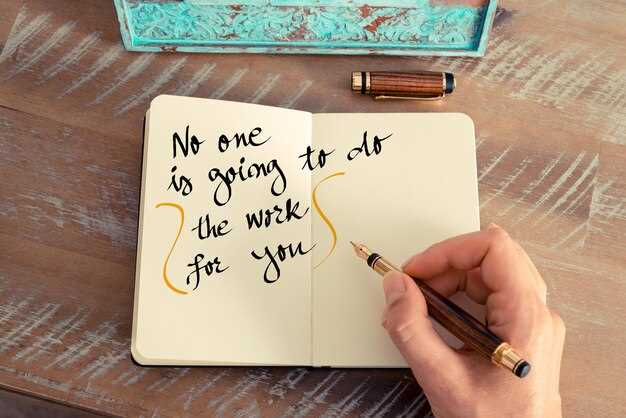 No one
is going to do
the work
for you